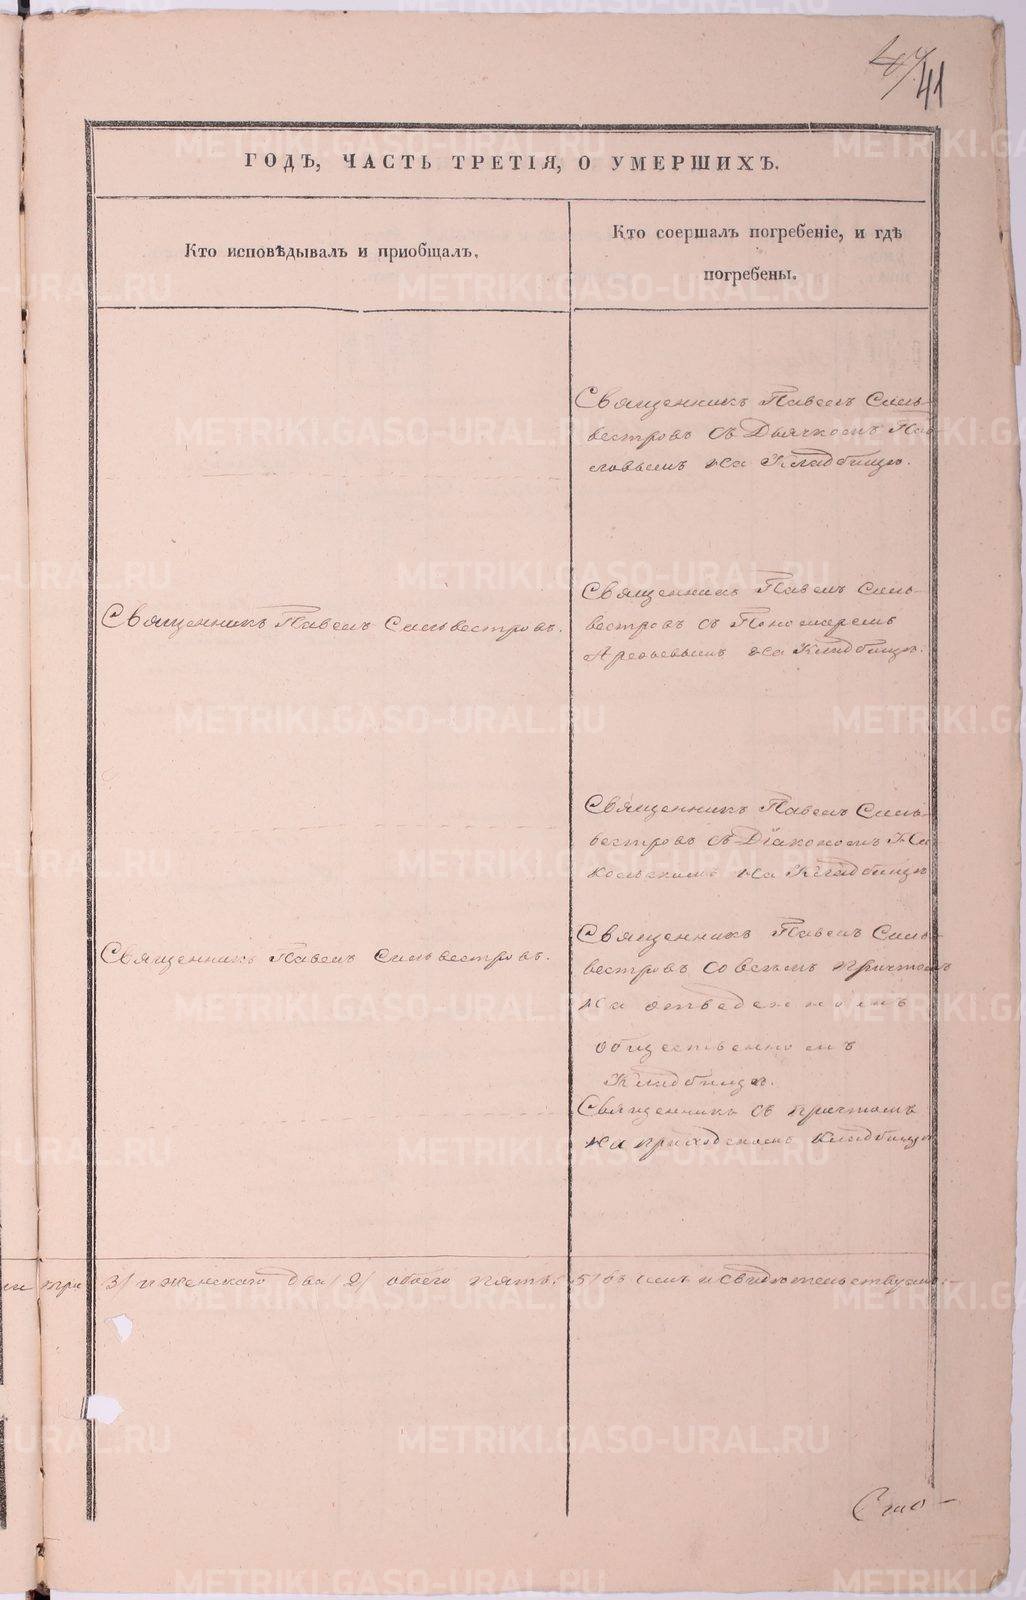 41
ГОДЪ, ЧАСТЬ ТРЕТІЯ, О УМЕРШИХЪ.
Кто исповѣдывалъ и приобщалъ.
Кто соершалъ погребеніе, и гдѣ
погребены.
Священникъ Павелъ Силь-
вестровъ съ Дьячкомъ Пав-
ловымъ на Кладбищѣ.
Священникъ Павелъ Сильвестровъ.
Священникъ Павелъ Силь-
вестровъ съ Пономаремъ
Арефьевымъ на Кладбищѣ.
Священникъ Павелъ Силь-
вестровъ съ Діакономъ Ни-
кольскимъ на Кладбищѣ
Священникъ Павелъ Сильвестровъ.
Священникъ Павелъ Силь-
вестровъ со всѣмъ причтомъ
на отведенномъ
общественномъ
Кладбищѣ.
Священникъ съ причтомъ
на приходскомъ Кладбищѣ
три 3/ и женскаго два /2/ обоего пять. 5/ въ семъ и свидѣтельствуемъ:-
METRIKI.GASO-URAL.RU